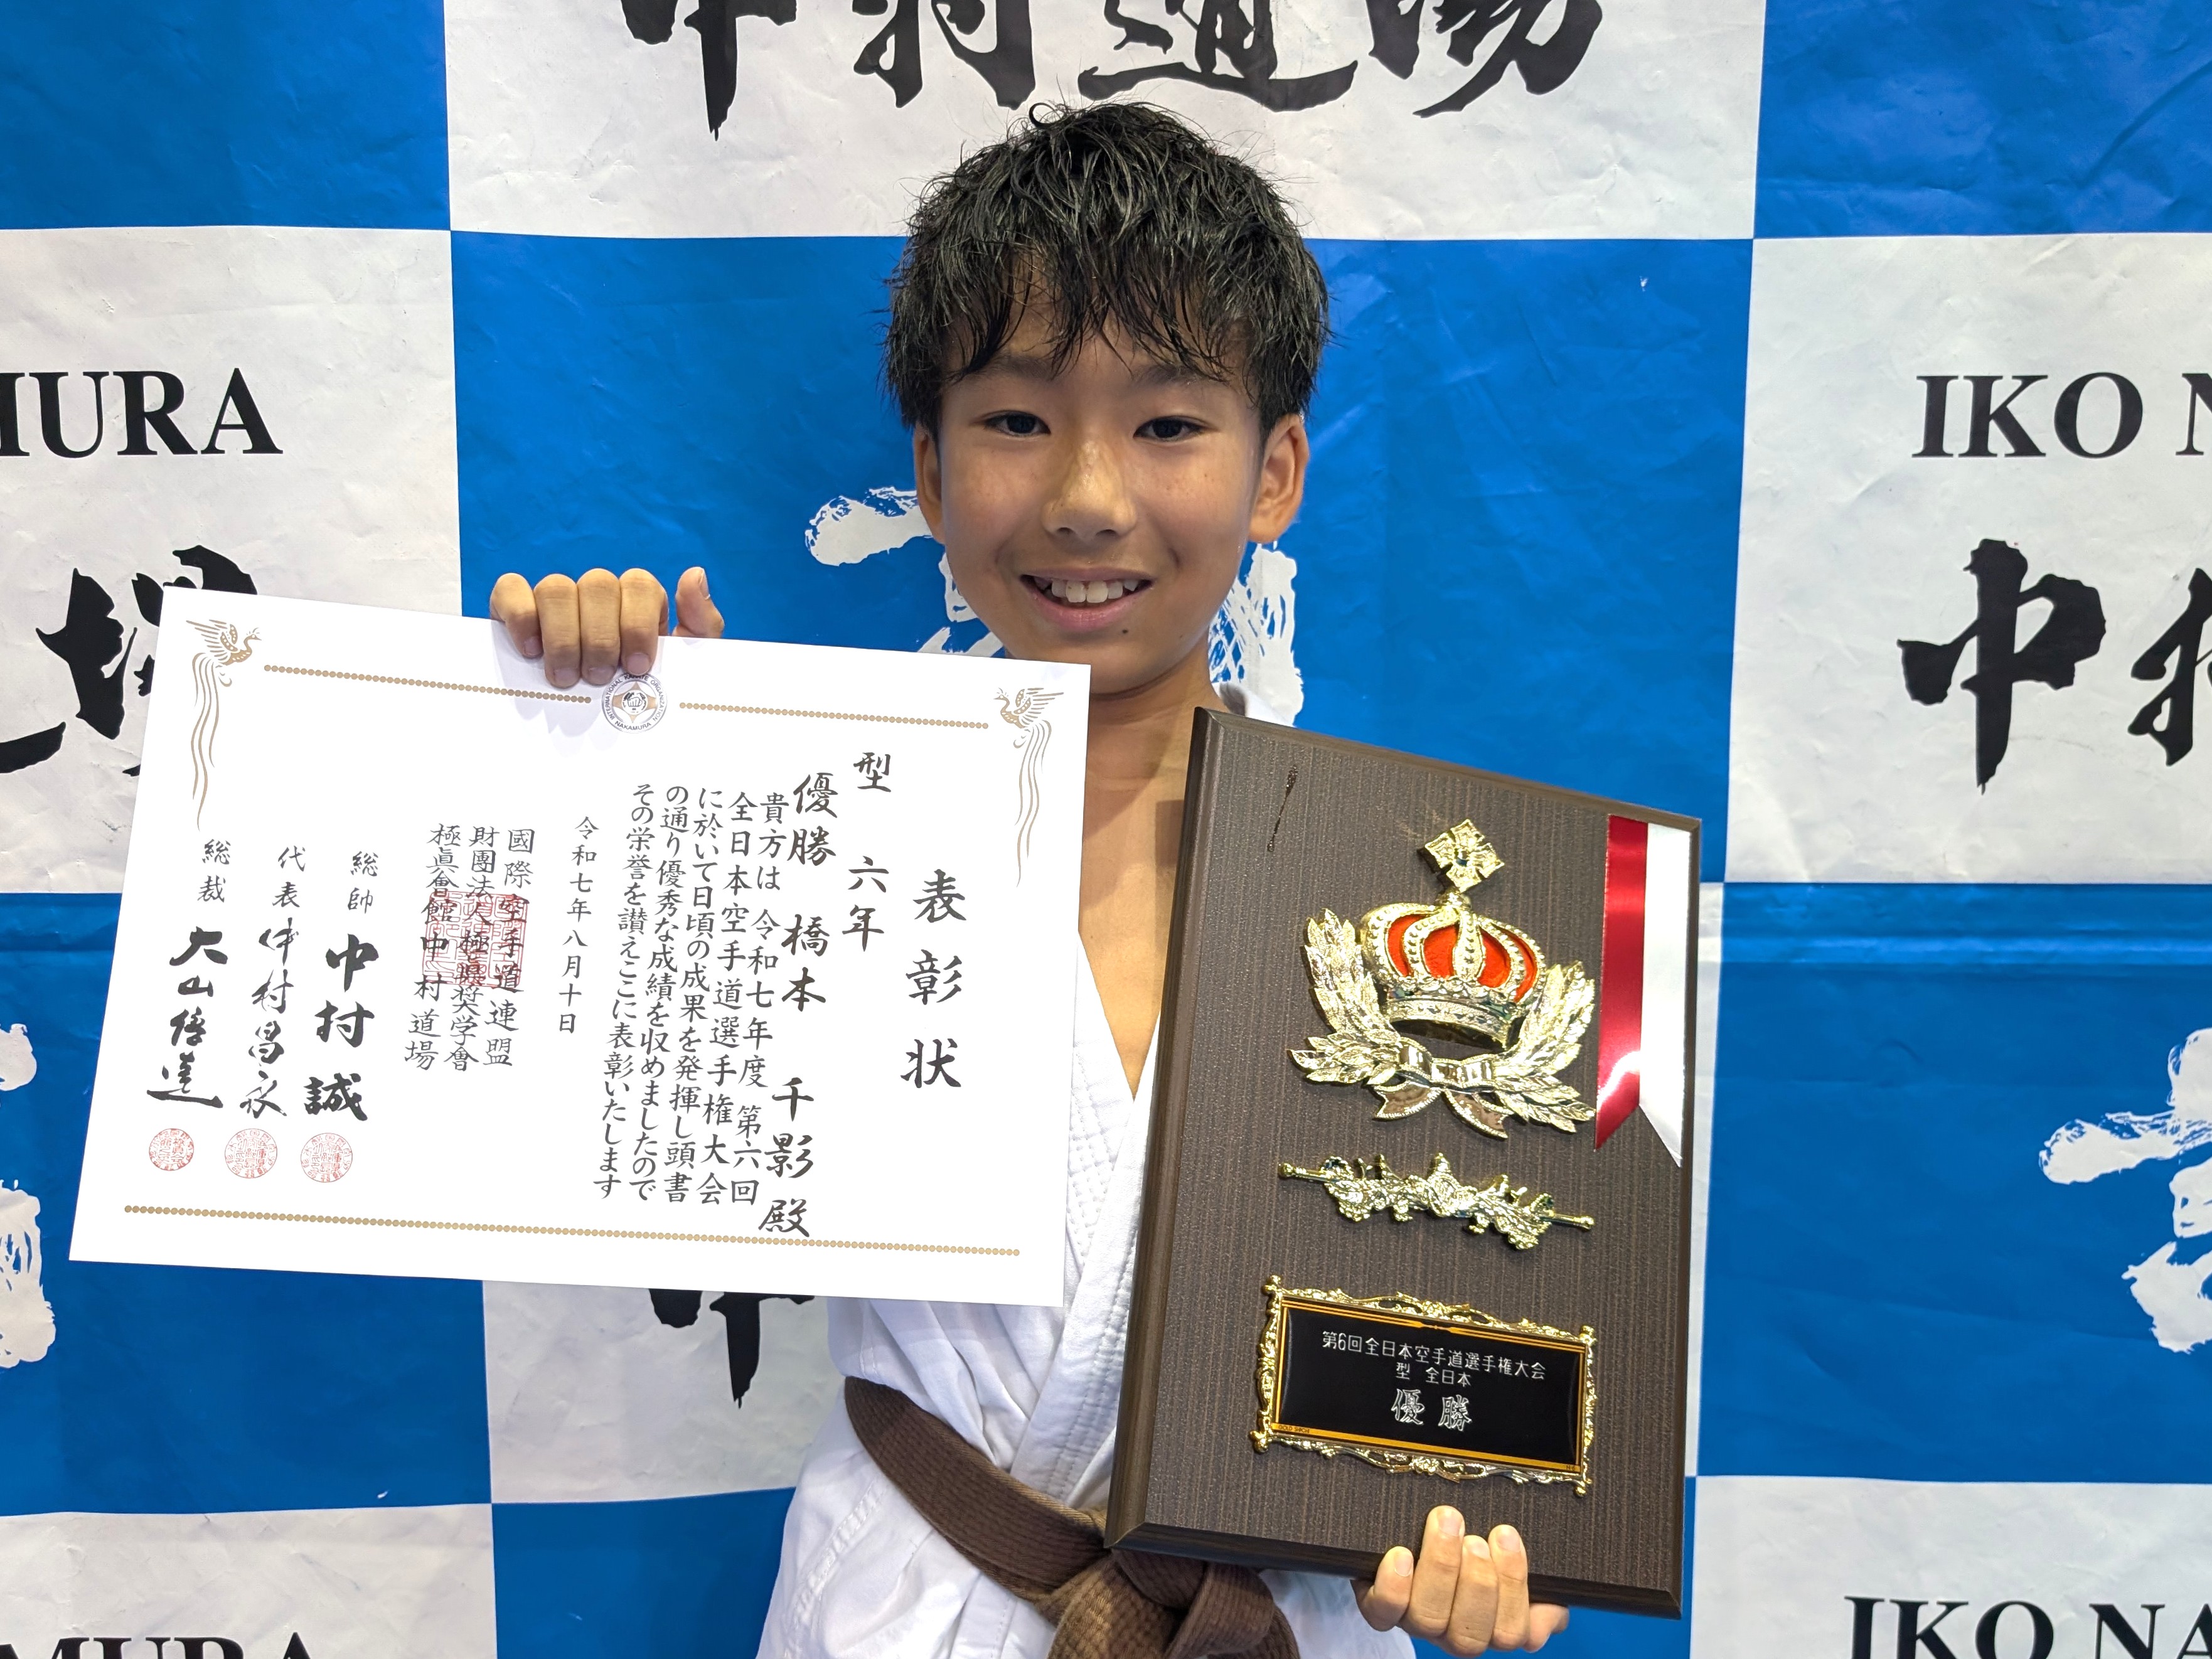 中村道場
MURA
IKO N
中村
場
INTERNATIONAL KARATE ORGANIZATION
NAKAMURA
表彰状
型 六年
優勝 橋本 千影 殿
貴方は 令和七年度 第六回
全日本空手道選手権大会
に於いて日頃の成果を発揮し頭書
の通り優秀な成績を収めましたので
その栄誉を讃えここに表彰いたします
令和七年八月十日
國際空手道連盟
財團法人極真奨学會
極真會館中村道場
総帥 中村誠
代表 中村昌永
総裁 大山倍達
第6回全日本空手道選手権大会
型 全日本
優勝
中
MURA
IKO NA